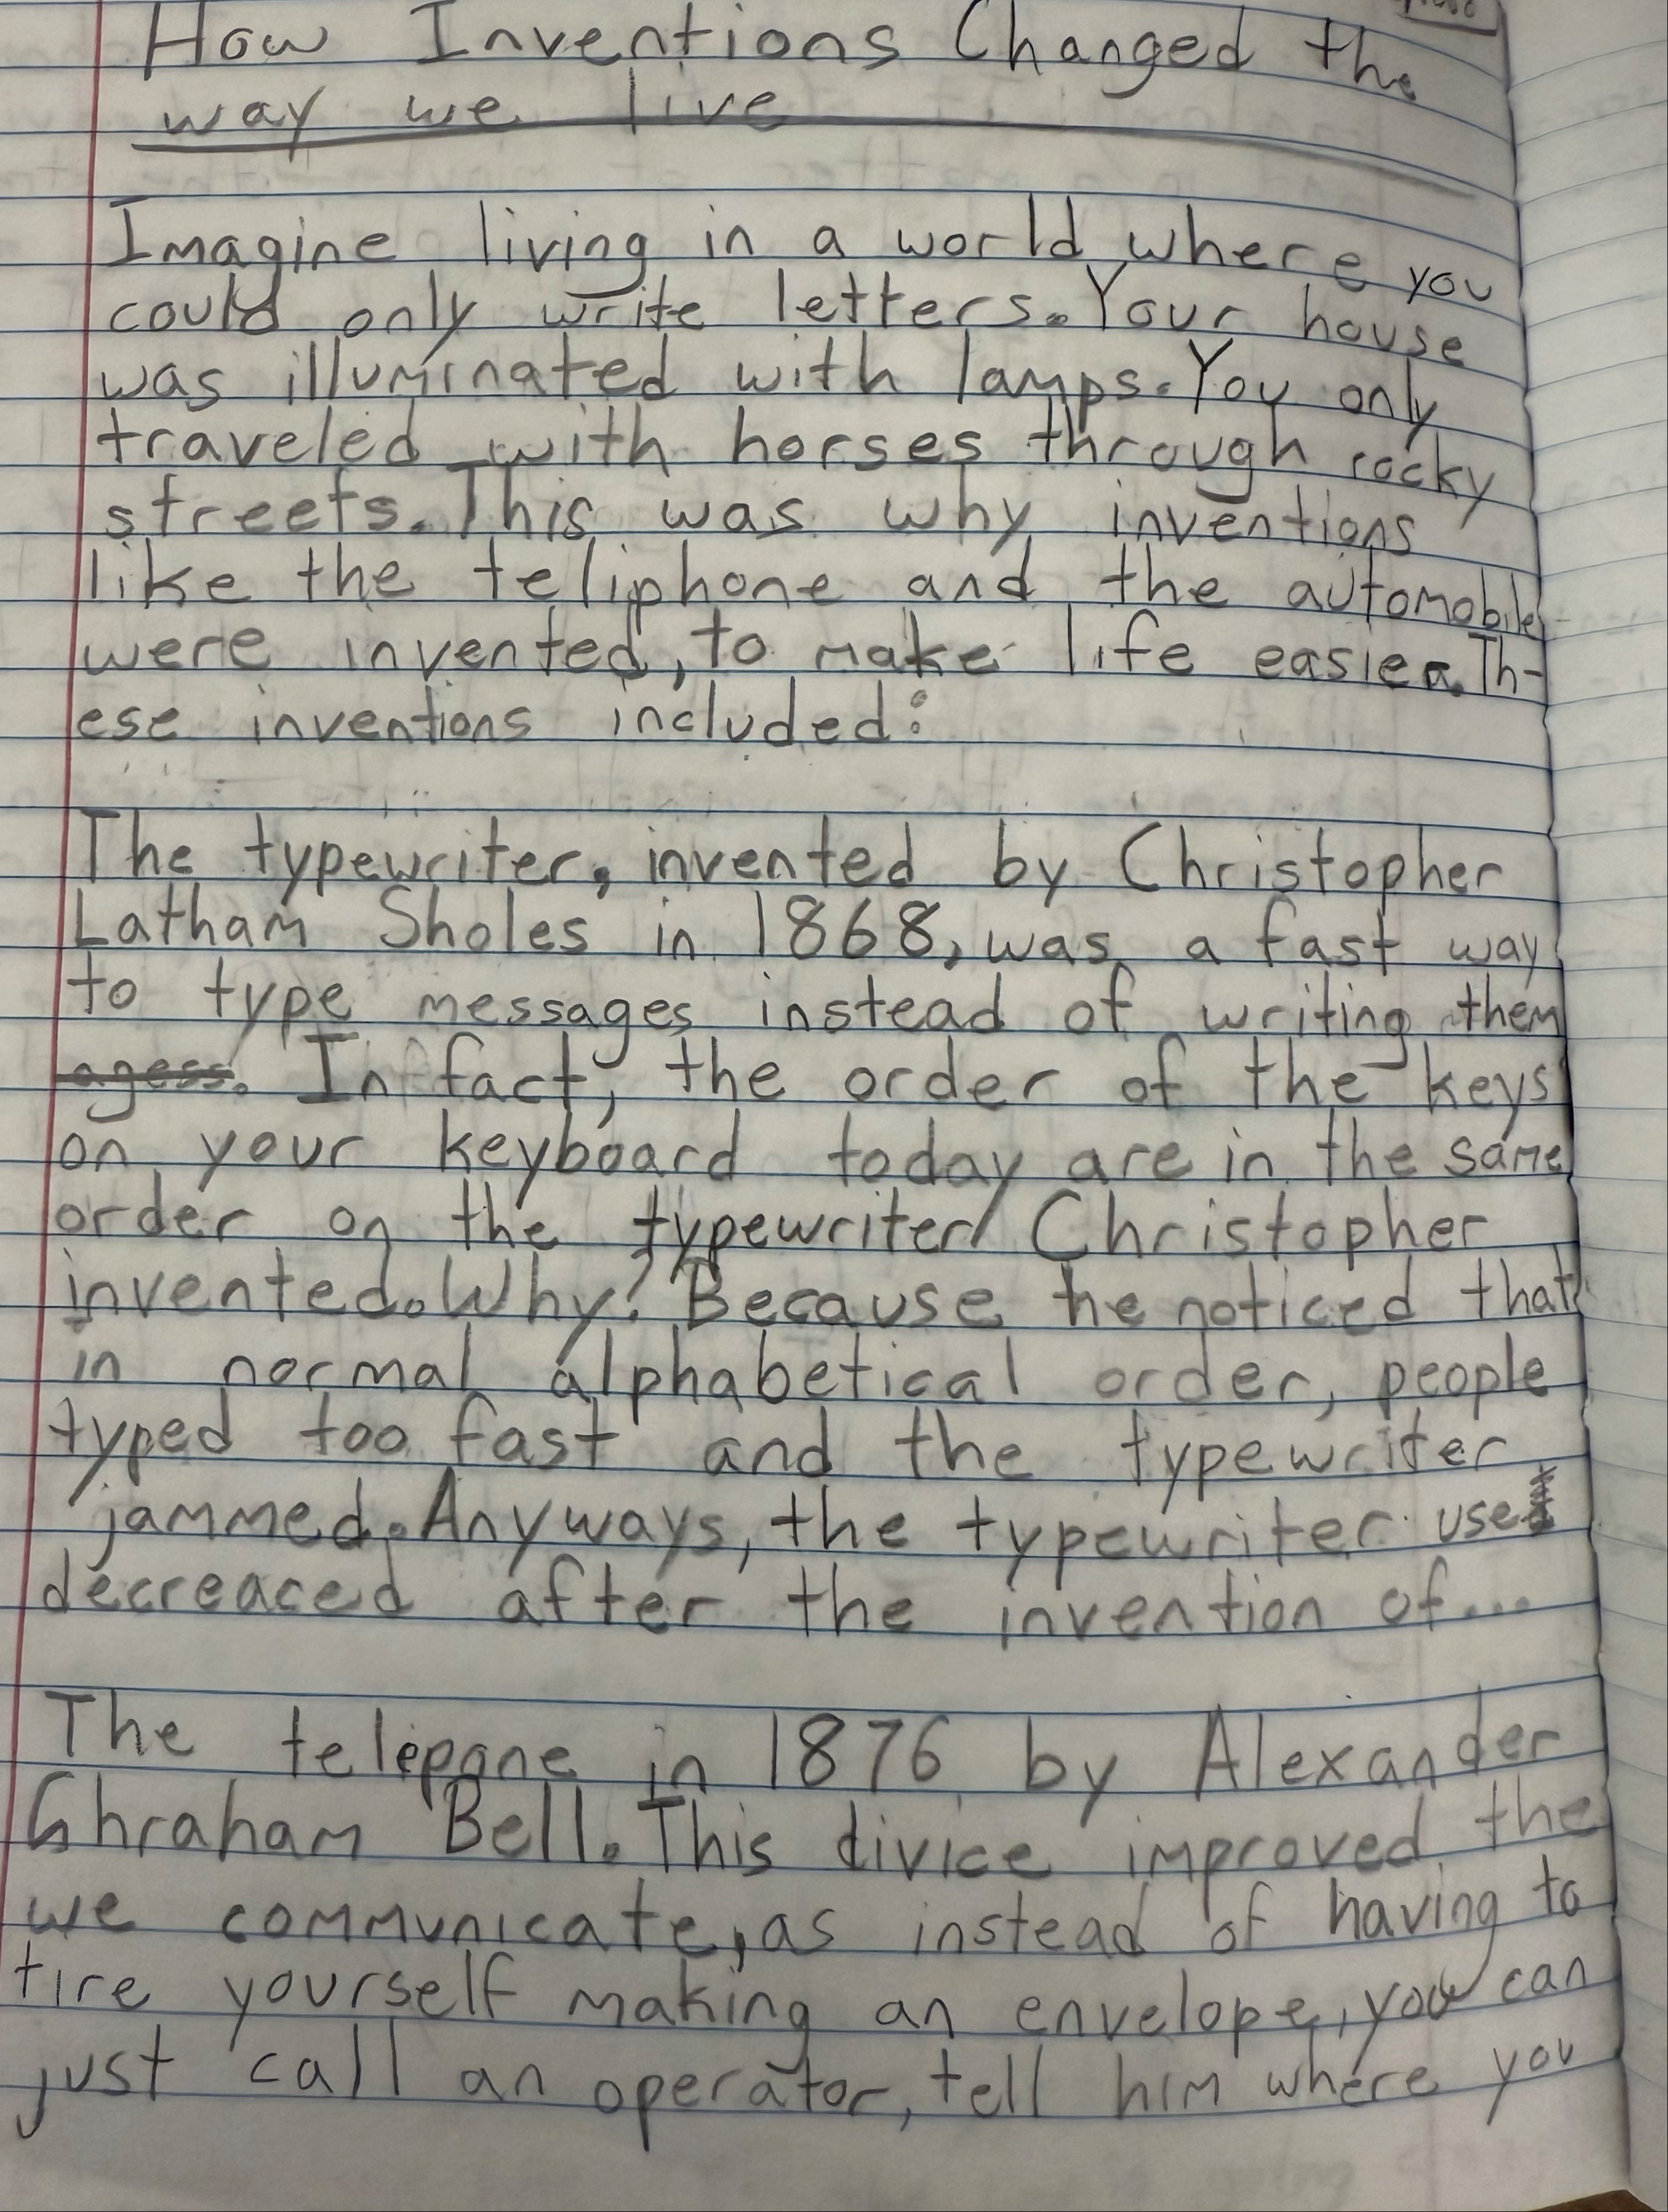 How Inventions Changed the
way we live
Imagine living in a world where you
could only write letters. Your house
was illuminated with lamps. You only
traveled with horses through rocky
streets. This was why inventions
like the teliphone and the automobile
were invented, to make life easier. Th-
ese inventions included:
The typewriter, invented by Christopher
Latham Sholes in 1868, was a fast way
to type messages instead of writing them
agess. In fact, the order of the keys
on your keyboard today are in the same
order on the typewriter Christopher
invented. Why? Because he noticed that
in normal alphabetical order, people
typed too fast and the typewriter
jammed. Anyways, the typewriter use
decreaced after the invention of...
The telepone in 1876 by Alexander
Ghraham Bell. This divice improved the
we communicate, as instead of having to
tire yourself making an envelope, you can
just call an operator, tell him where you